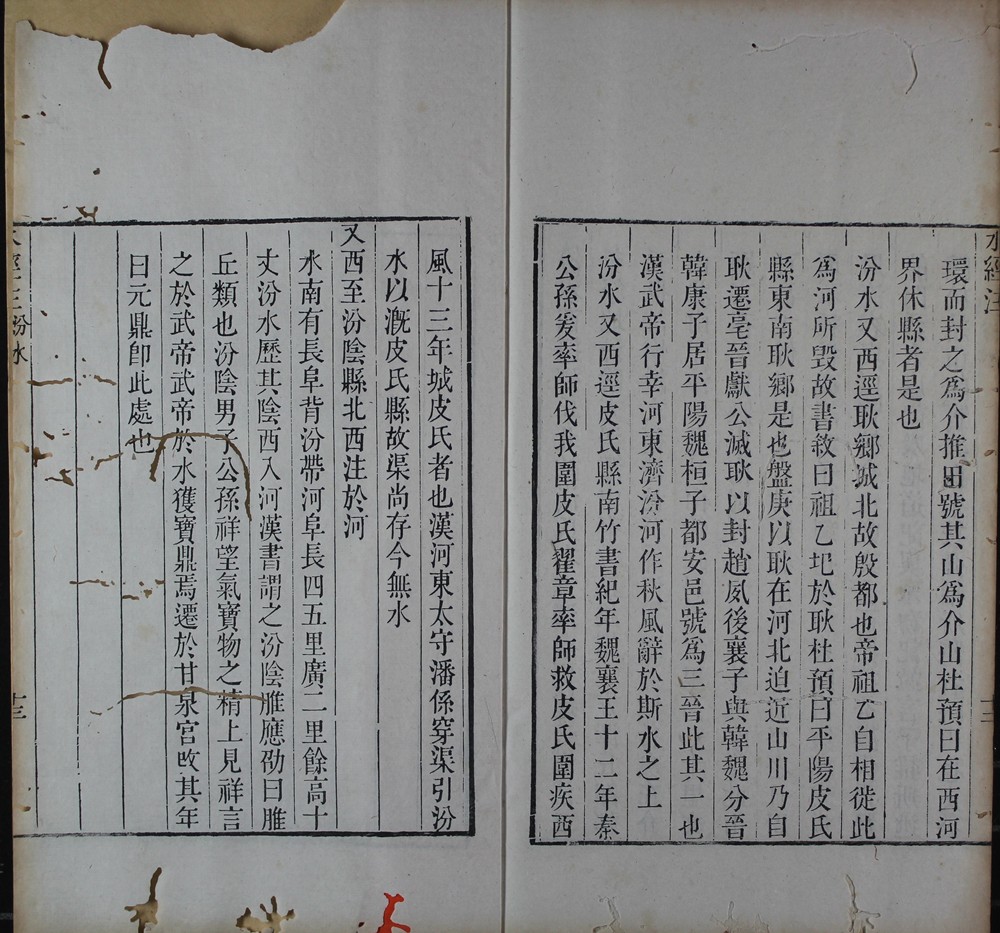 環而封之爲介推田號其山爲介山杜預曰在西河
界休縣者是也
汾水又西逕耿鄉城北故殷都也帝祖乙自相徙此
爲河所毀故書敘曰祖乙圮於耿杜預曰平陽皮氏
縣東南耿鄉是也盤庚以耿在河北迫近山川乃自
耿遷亳晉獻公滅耿以封趙夙後襄子與韓魏分晉
韓康子居平陽魏桓子都安邑號爲三晉此其一也
漢武帝行幸河東濟汾河作秋風辭於斯水之上
汾水又西逕皮氏縣南竹書紀年魏襄王十二年秦
公孫爰率師伐我圍皮氏翟章率師救皮氏圍疾西
風十三年城皮氏者也漢河東太守潘係穿渠引汾
水以溉皮氏縣故渠尚存今無水
又西至汾陰縣北西注於河
水南有長阜背汾帶河阜長四五里廣二里餘高十
丈汾水歷其陰西入河漢書謂之汾陰脽應劭曰脽
丘類也汾陰男子公孫祥望氣寶物之精上見祥言
之於武帝武帝於水獲寶鼎焉遷於甘泉宮改其年
曰元鼎卽此處也
汾水
十三